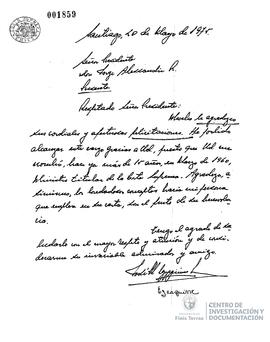 001859
Santiago, 20 de Mayo de 1975
Señor Presidente
don Jorge Alessandri R.
Presente
Respetado Señor Presidente:
Mucho le agradezco
sus cordiales y afectuosas felicitaciones. He podido
alcanzar este cargo gracias a Ud, puesto que Ud me
nombró, hace ya más de 15 años, en Mayo de 1960,
Ministro titular de la Corte Suprema. Agradezco,
los conceptos hacia mi persona
que emplea en su carta,
Tengo el agrado de
saludarlo con el mayor respeto y atención y de
su invariable admirador y amigo.
Eyzaguirre
Universidad
Finis Terrae
CENTRO DE
INVESTIGACIÓN Y
DOCUMENTACIÓN